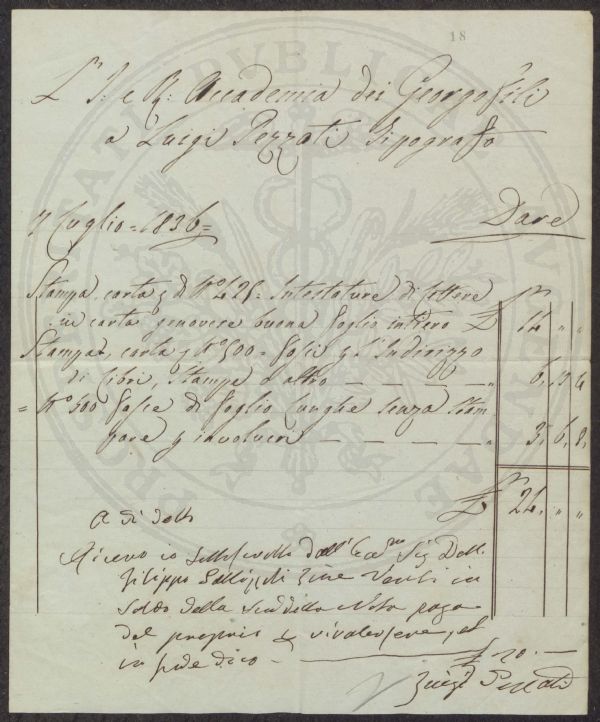 18
L' I: e R: Accademia dei Georgofili
a Luigi Pezzati Tipografo
7 Luglio = 1836 =
Dare
Stampa, carta di N° 425 = Intestature di lettere
in carta genovese buona foglio intiero £ 14 " "
Stampa, carta N° 500 = fasce l'Indirizzo
di libri, Stampe o altro — — — — " 6. 13 4
= N° 500 fasce di foglio lunghe senza stam
pare involucri — — — — — " 3. 6. 8.
£ 24. " "
A dì detto
Ricevo io sottoscritto dall' Sig. Dott.
Filippo Lire Venti in
saldo della suddetta Nota paga
del proprio et
in fede dico — £ 20. —
Luigi Pezzati
PROSPERITATI PUBLICAE AUGENDAE